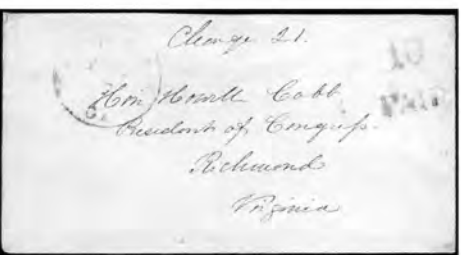 Charge 21.
10
PAID
Hon Howell Cobb
President of Congress.
Richmond
Virginia